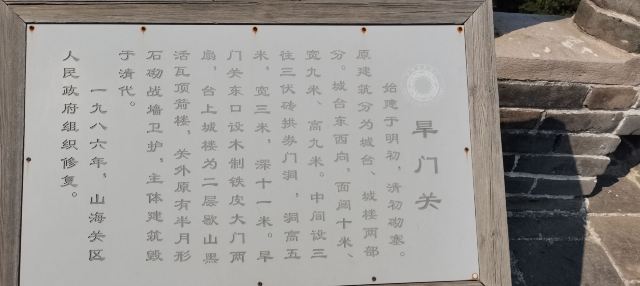 旱门关
始建于明初，清初砌塞。
原建筑分为城台、城楼两部
分。城台东西向，面阔十米、
宽九米、高九米。中间设三
往三伏砖拱券门洞，洞高五
米，宽三米，深十一米。旱
门关东口设木制铁皮大门两
扇，台上城楼为二层歇山黑
活瓦顶箭楼，关外原有半月形
石砌战墙卫护，主体建筑毁
于清代。
一九八六年，山海关区
人民政府组织修复。